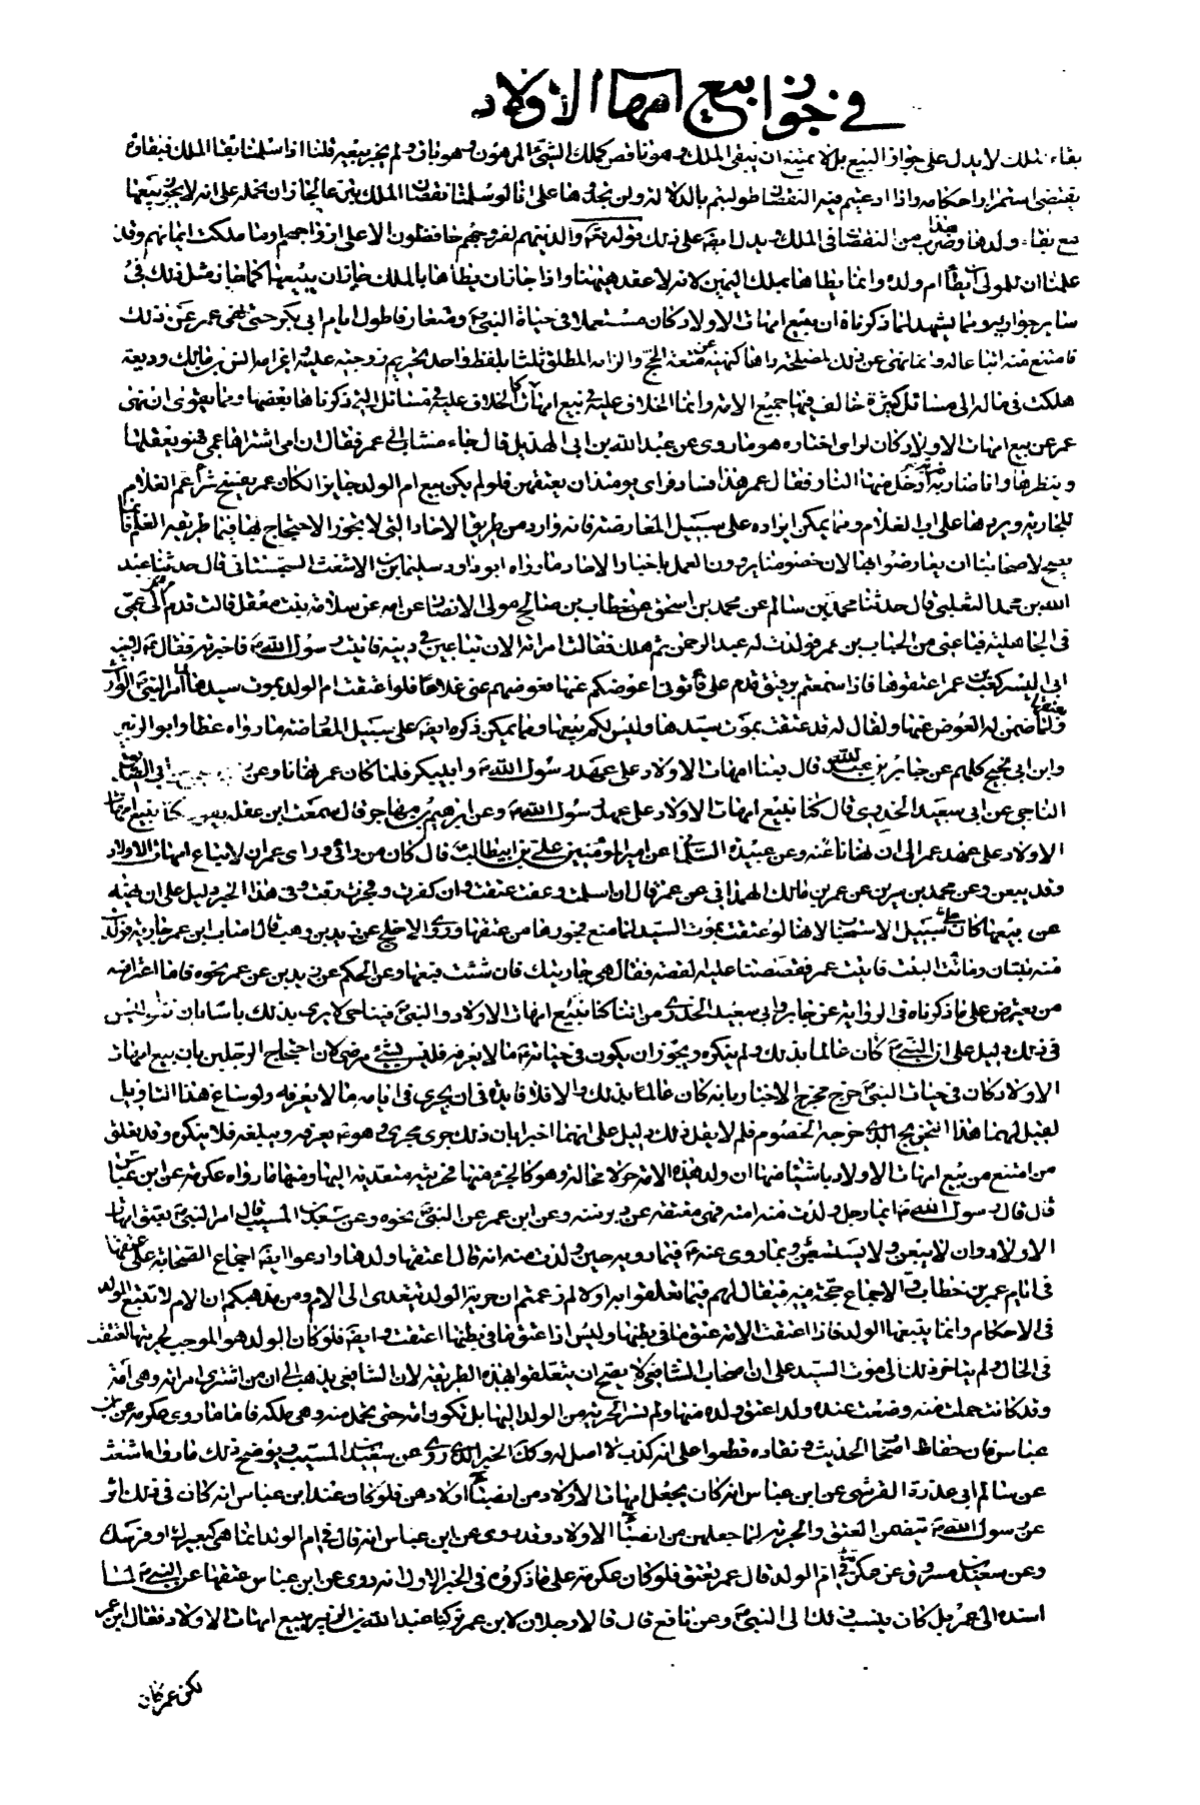 في جواز بيع امهات الاولاد
بقاء الملك لا يدل على جواز البيع بل لا يمتنع ان يبقى الملك وهو ناقص كملك الشيء المرهون وهو باق ولم يجز بيعه قلنا اذا سلمنا بقا الملك فبقاؤه
يقتضي استمرار احكامه واذا ادعيتم فيه النقصان طولبتم بالدلالة ولن تجدوها على انا لو سلمنا نقصان الملك لجاز ان نحمله على انه لا يجوز بيعها
مع بقاء ولدها وهذا ضرب من النقصان في الملك ويدل ايضا على ذلك قوله تعالى والذينهم لفروجهم حافظون الا على ازواجهم او ما ملكت ايمانهم وقد
علمنا ان للمولى ان يطأ ام ولده وانما يطاها بملك اليمين لانه لا عقد هيهنا واذا جاز ان يطأها بالملك جاز ان يبيعها كما جاز مثل ذلك في
ساير جواريه ومما يشهد لما ذكرناه ان بيع امهات الاولاد كان مستعملا في حياة النبي ومتعارفا طول ايام ابي بكر حتى نهى عمر عن ذلك
فامتنع منه اتباعا له وانما نهى عن ذلك لمصلحة راها كنهيه عن متعة الحج والزامه المطلق ثلثا بلفظ واحد تحريم زوجته عليه واغرامه انس بن مالك وديعة
هلكت في ماله الى مسائل كثيرة خالف فيها جميع الامة وانما الخلاف عليه في بيع امهات الاولاد كالخلاف عليه في مسائل التي ذكرناها بعضها ومما يقوي ان نهى
عمر عن بيع امهات الاولاد كان لراي اختاره هو ما روي عن عبدالله بن ابي الهذيل قال جاء شاب الى عمر فقال ان امي اشتراها عمي فهو يفعل بها
وينظرها وانا ضاربه ضربة ادخل منها النار فقال عمر هذا فساد فراى يومئذ ان يعتقهن فلو لم يكن بيع ام الولد جايزا لكان عمر يفسخ شراء عم الغلام
للجارية ويردها على اب الغلام ومما يمكن ايراده على سبيل المعارضة فانه وارد من طريق الاحاد التي لا يجوز الاحتجاج بها فيما طريقه العلم وانما
يصح لاصحابنا ان يعارضوا بها لان خصومنا يرون العمل باخبار الاحاد ما رواه ابو داود سليمان بن الاشعث السجستاني قال حدثنا عبد
الله بن محمد النفيلي قال حدثنا محمد بن سالم عن محمد بن اسحق عن خطاب بن صالح مولى الانصار عن امه عن سلامة بنت معقل قالت قدم بي عمي
في الجاهلية فباعني من الحباب بن عمر فولدت له عبد الرحمن ثم هلك فقالت امراته الان تباعين في دينه فاتيت رسول الله فاخبرته فقال
ابي اليسر كعب بن عمر اعتقوها فاذا سمعتم برقيق قدم علي فاتوني اعوضكم عنها فعوضهم عني غلاما فلو اعتقت ام الولد بموت سيدها لما امر النبي الوارث بعتقها
ولما ضمن له العوض عنها ولقال له قد عتقت بموت سيدها وليس لكم بيعها ومما يمكن ذكره ايضا على سبيل المعارضة ما رواه عطا وابو الزبير
وابن ابي نجيح كلهم عن جابر بن عبد الله قال بعنا امهات الاولاد على عهد رسول الله وابي بكر فلما كان عمر نهانا وعن ابي الصديق
الناجي عن ابي سعيد الخدري قال كنا نبيع امهات الاولاد على عهد رسول الله وعن ابرهيم بن مهاجر قال سمعت ابن عقل يقول كنا نبيع امهات
الاولاد على عهد عمر الى ان نهانا عنه وعن عبيدة السلماني عن امير المؤمنين علي بن ابيطالب قال كان من رايي وراى عمر ان لا يباع امهات الاولاد
وقد يبعن وعن محمد بن سيرين عن عمر بن مالك الهمذاني عن عمر قال ان اسلمت وعفت عتقت وان كفرت وفجرت رقت وفي هذا الخبر دليل على ان نهيه
عن بيعها كان على سبيل الاستحباب لانها لو عتقت بموت السيد لما منع فجورها من عتقها وروى الاجلح عن زيد بن وهب قال اصاب ابن عمر جارية فولدت
منه بنتان وماتت البنت فاتيت عمر فقصصنا عليه القصة فقال هي جاريتك فان شئت فبعها وعن الحكم عن زيد بن عن عمر نحوه فاما اعتراض
من يعترض على ما ذكرناه في الرواية عن جابر وابي سعيد الخدري من اننا كنا نبيع امهات الاولاد والنبي فينا حي لا يرى بذلك باسا بان نقول ليس
في ذلك دليل على ان النبي كان عالما بذلك ولم ينكره ويجوز ان يكون في حياته ما لا يعرفه فليس بشيء مرضي لان احتجاج الرجلين بان بيع امهات
الاولاد كان في حيات النبي خرج مخرج الاخبار بانه كان عالما بذلك والا فلا فايدة في ان يجري في ايامه ما لا يعرفه ولو ساغ هذا التاويل
لقيل لهما هذا التخريج الذي خرجه الخصوم فلم لا يقل ذلك دليل على انهما اخبرا بان ذلك جرى مجرى وهو يعرفه ويبلغه فلا ينكره وقد تعلق
من امتنع من بيع امهات الاولاد باشيا منها ان ولد هذه الامة حر لا محالة وهو كالجزء منها فحريته متعدية اليها ومنها ما رواه عكرمة عن ابن عباس
قال قال رسول الله ايما رجل ولدت منه امته فهي معتقة عن دبر منه وعن ابن عمر عن النبي نحوه وعن سعيد بن المسيب قال امر النبي بعتق امهات
الاولاد وان لا يبعن ولا يستسعين وبما روى عنه فيما رويه حين ولدت منه انه قال اعتقها ولدها وادعوا ايضا اجماع الصحابة على عتقها
في ايام عمر بن خطاب والاجماع حجة فيه فيقال لهم فيما تعلقوا به اولا لم زعمتم ان حرية الولد تتعدى الى الام ومن مذهبكم ان الام لا تتبع الولد
في الاحكام وانما يتبعها الولد فاذا اعتقت الامة عتق ما في بطنها وليس اذا عتق ما في بطنها اعتقت وايضا فلو كان الولد هو الموجب لحريتها لعتقت
في الحال ولم يتاخر ذلك الى موت السيد على ان اصحاب الشافعي لا يصح ان يتعلقوا بهذه الطريقة لان الشافعي يذهب الى ان من اشترى امراته وهي امة
وقد كانت حملت منه وضعت عنده ولدا عتق ولده منها ولم تسر الحرية من الولد اليها بل تكون امته حتى تحمل منه وهي ملكه فاما ما روى عكرمة عن ابن
عباس فان حفاظ اصحاب الحديث ونقاده قطعوا على انه كذب لا اصل له وكذلك الخبر الذي روى عن سعيد بن المسيب ويوضح ذلك ما رواه اشعث
عن سالم ابي عذرة القرشي عن ابن عباس انه كان يجعل امهات الاولاد من انصباء اولادهن فلو كان عند ابن عباس انه كان في ذلك اثر
عن رسول الله يتضمن العتق والحرية لما جعلهن من انصباء الاولاد وقد روى عن ابن عباس انه قال في ام الولد انما هي كبعيرك او فرسك
وعن سعيد بن مسروق عن عكرمة في ام الولد قال عمر تعتق فلو كان عكرمة على ما ذكروه في الخبر الاول انه روى عن ابن عباس عتقها عن النبي لما
اسنده الى عمر بل كان ينسب ذلك الى النبي وعن نافع قال قالا رجلان لابن عمر تركنا عبد الله بن الزبير يبيع امهات الاولاد فقال ابن عمر
لكن عمر كان